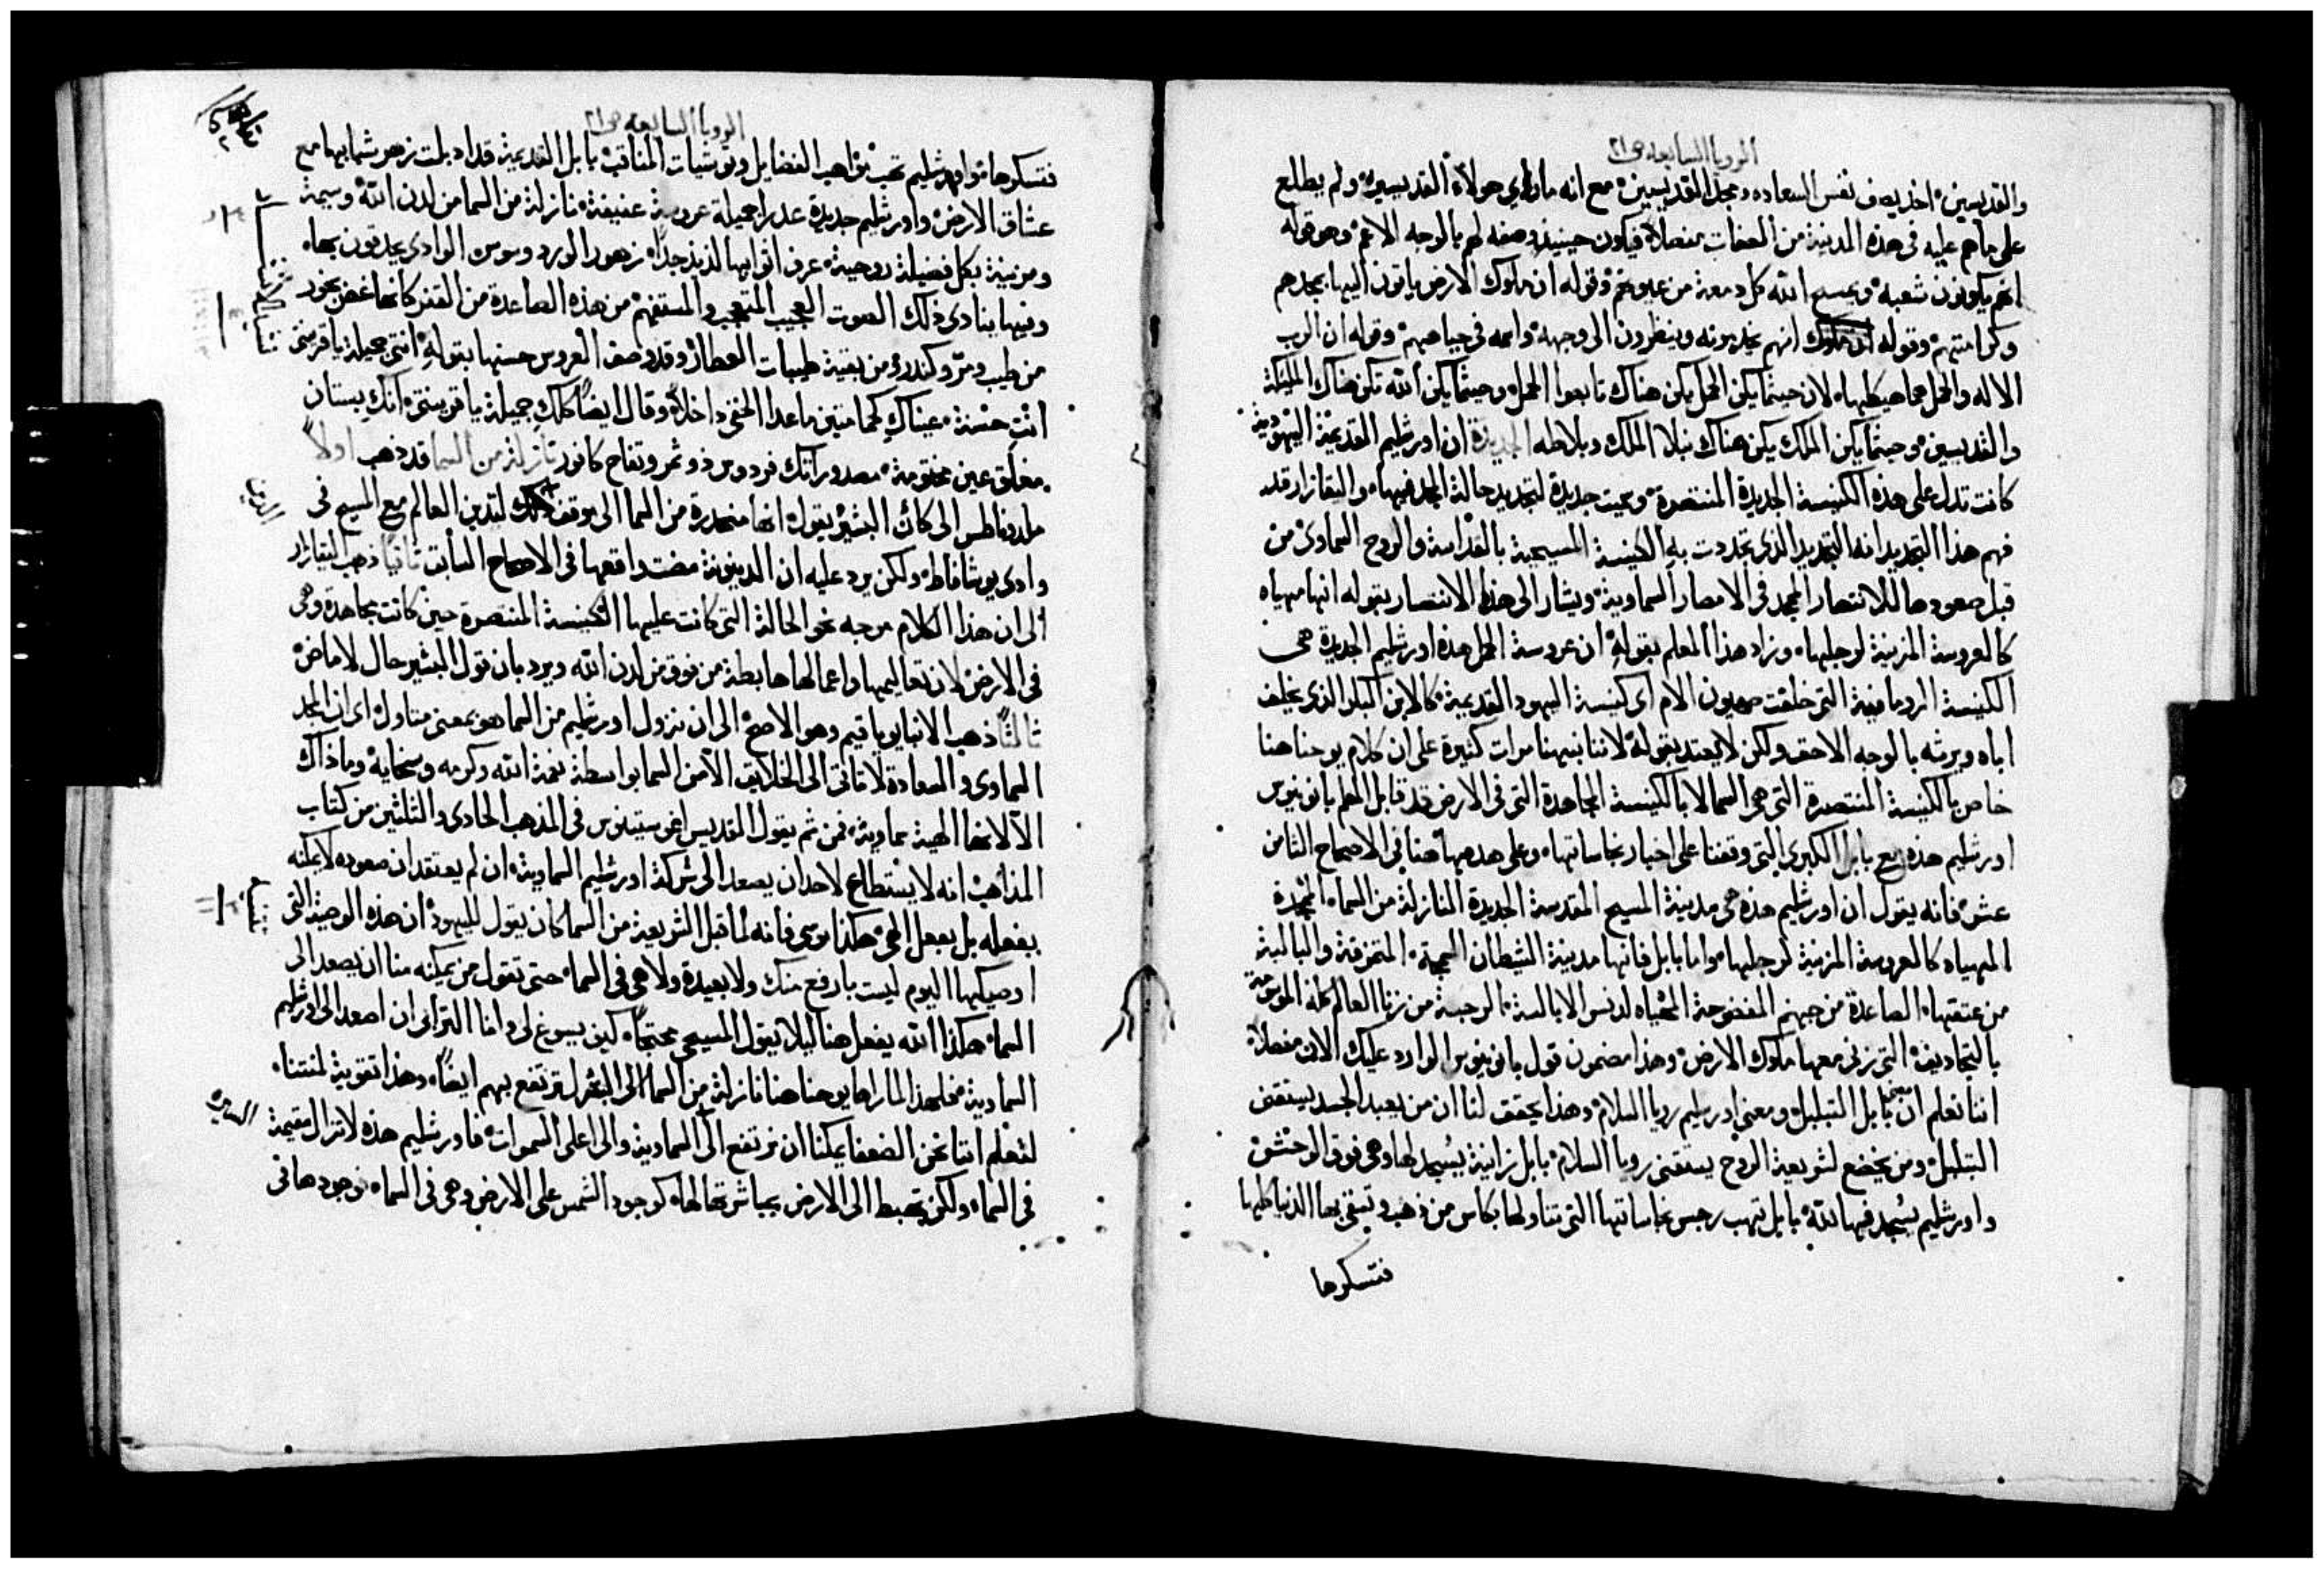 الرويا السابعه ص٢١
والقديسين اخذ يصف نفس السعاده ومجد القديسين مع انه ما راي هولاء القديسين ولم يطلع
على ما هم عليه فى هذه المدينة من الصفات مفصلاً فيكون حينيذ وصفه لهم بالوجه الاعم وهو قوله
انهم يكونون شعبه ويمسح الله كل دمعة من عيونهم وقوله ان ملوك الارض ياتون اليها بمجدهم
وكرامتهم وقوله انهم يخدمونه وينظرون الى وجهه واسمه فى جباههم وقوله ان الرب
الاله والحمل هما هيكلها لان حيثما يكن الحمل يكن هناك تابعوا الحمل وحيثما يكن الله تكن هناك الملكة
والقديسين وحيثما يكن الملك يكن هناك نبلا الملك وبلاطه الجديدة ان اورشليم القديمة اليهودية
كانت تدل على هذه الكنيسة الجديدة المنتصرة وسميت جديدة لتجديد حالة المجد فيها والبقازار قد
فهم هذا التجديد انه التجديد الذى تجددت به الكنيسة المسيحية بالقداسة والروح السماوى من
قبل صعودها للانتصار المجد فى الامصار السماوية ويشار الى هذا الانتصار بقوله انها مهياه
كالعروسة المزينة لرجلها وزاد هذا المعلم بقوله ان عروسة الحمل هذه اورشليم الجديدة هى
الكنيسة الرومانية التى خلفت صهيون الام اى كنيسة اليهود القديمة كالابن البكر الذى يخلف
اباه ويرثه بالوجه الاحق ولكن لا يعتد بقوله لاننا نبهنا مرات كثيرة على ان كلام يوحنا هنا
خاص بالكنيسة المنتصرة التى هى السما لا بالكنيسة المجاهدة التى فى الارض قد قابل المعلم بانونيوس
اورشليم هذه مع بابل الكبرى التى وقفنا على اخبار نجاساتها وعلى هدمها هنا فى الاصحاح الثامن
عشر فانه يقول ان اورشليم هذه هى مدينة المسيح المقدسة الجديدة النازلة من السماء الممجدة
المهياه كالعروسة المزينة لرجلها واما بابل فانها مدينة الشيطان السمجة المتمزقة والبالية
من عتقها الصاعدة من جهنم المفضوحة المهياه لدنس الابالسة الرجسة من زنا العالم كله الموسومة
بالتجاديف التى زنى معها ملوك الارض وهذا مضمون قول بانونيوس الوارد عليك الان مفصلاً
اننا نعلم ان معنى بابل التبلبل ومعنى اورشليم رويا السلام وهذا يحقق لنا ان من يعبد الجسد يستقنى
التبلبل ومن يخضع لشريعة الروح يستقنى رويا السلام بابل زانية يسجد لها وهى فوق الوحش
واورشليم يسجد فيها لله بابل تهب رجس نجاساتها التى تناولها بكاس من ذهب وتسقى بها الدنيا كلها
فتسكرها
الرويا السابعه ص٢١
فتسكرها واورشليم تحب مواهب الفضايل وتوشيات المناقب بابل القديمة قد ادبلت زهر شبابها مع
عشاق الارض واورشليم جديدة عدرا جميلة عروسة عفيفة نازلة من السما من لدن الله وسيمة
ومزينة بكل فضيلة روحية عرف اثوابها لذيذ جداً زهور الورد وسوسن الوادى يحدقون بها
وفيها ينادى ذلك الصوت العجيب المتعجب والمستفهم من هذه الصاعدة من القفر كانها غصن بخور
من طيب ومر وكندر ومن بقية طيبات العطار وقد وصف العروس حسنها بقوله انتى جميلة يا قرينتى
انت حسنة عيناك كحمامتين ما عدا الخفى داخلاً وقال ايضاً كلك جميلة يا قرينتى انك بستان
مغلق عين مختومة مصدوراتك فردوس ذو ثمر وتفاح كانور نازلة من السما قد ذهب اولاً
ملدوناطس الى كان البشير بقوله انها منحدرة من السما الى موقف لتدين العالم مع المسيح فى
وادى يوشافاط ولكن يرد عليه ان الدينونة مضت واقعها فى الاصحاح السابق ثانياً ذهب البقازار
الى ان هذا الكلام موجه نحو الحالة التى كانت عليها الكنيسة المنتصرة حين كانت مجاهدة وهى
فى الارض لان تعاليمها واعمالها هابطة من فوق من لدن الله ويرد بان قول البشير حال لا ماض
ثالثاً ذهب الانبا يوياقيم وهو الاصح الى ان نزول اورشليم من السما هو بمعنى متاول اى ان المجد
السماوى والسعادة لا تاتى الى الخلايق الا من السما بواسطة نعمة الله وكرمه وسخايه وما ذاك
الا لانها الهية سماوية فمن ثم يقول القديس اغوستينوس فى المذهب الحادى والثلثين من كتاب
المذاهب انه لا يستطاع لاحد ان يصعد الى شركة اورشليم السماوية ان لم يعتقد ان صعوده لا يمكنه
بفعله بل بفعل الهى هكذا موسى فانه لما قبل الشريعة من السما كان يقول لليهود ان هذه الوصية التى
اوصيكها اليوم ليست بارفع منك ولا بعيدة ولا هى فى السما حتى تقول من يمكنه منا ان يصعد الى
السما هكذا الله يفعل هنا ليلا يقول المسيحى محتجاً كيف يسوغ لى وانا الترابى ان اصعد الى اورشليم
السماوية فلهذا المار راها يوحنا هنا نازلة من السما الى البشر لترتفع بهم ايضاً وهذا تقوية لمنتنا
لنعلم اننا نحن الضعفا يمكننا ان نرتفع الى السماوية والى اعلى السموات فاورشليم هذه لا تزال مقيمة
فى السما ولكن تهبط الى الارض بمباشرتها لها كوجود الشمس على الارض وهى فى السما ووجودها فى